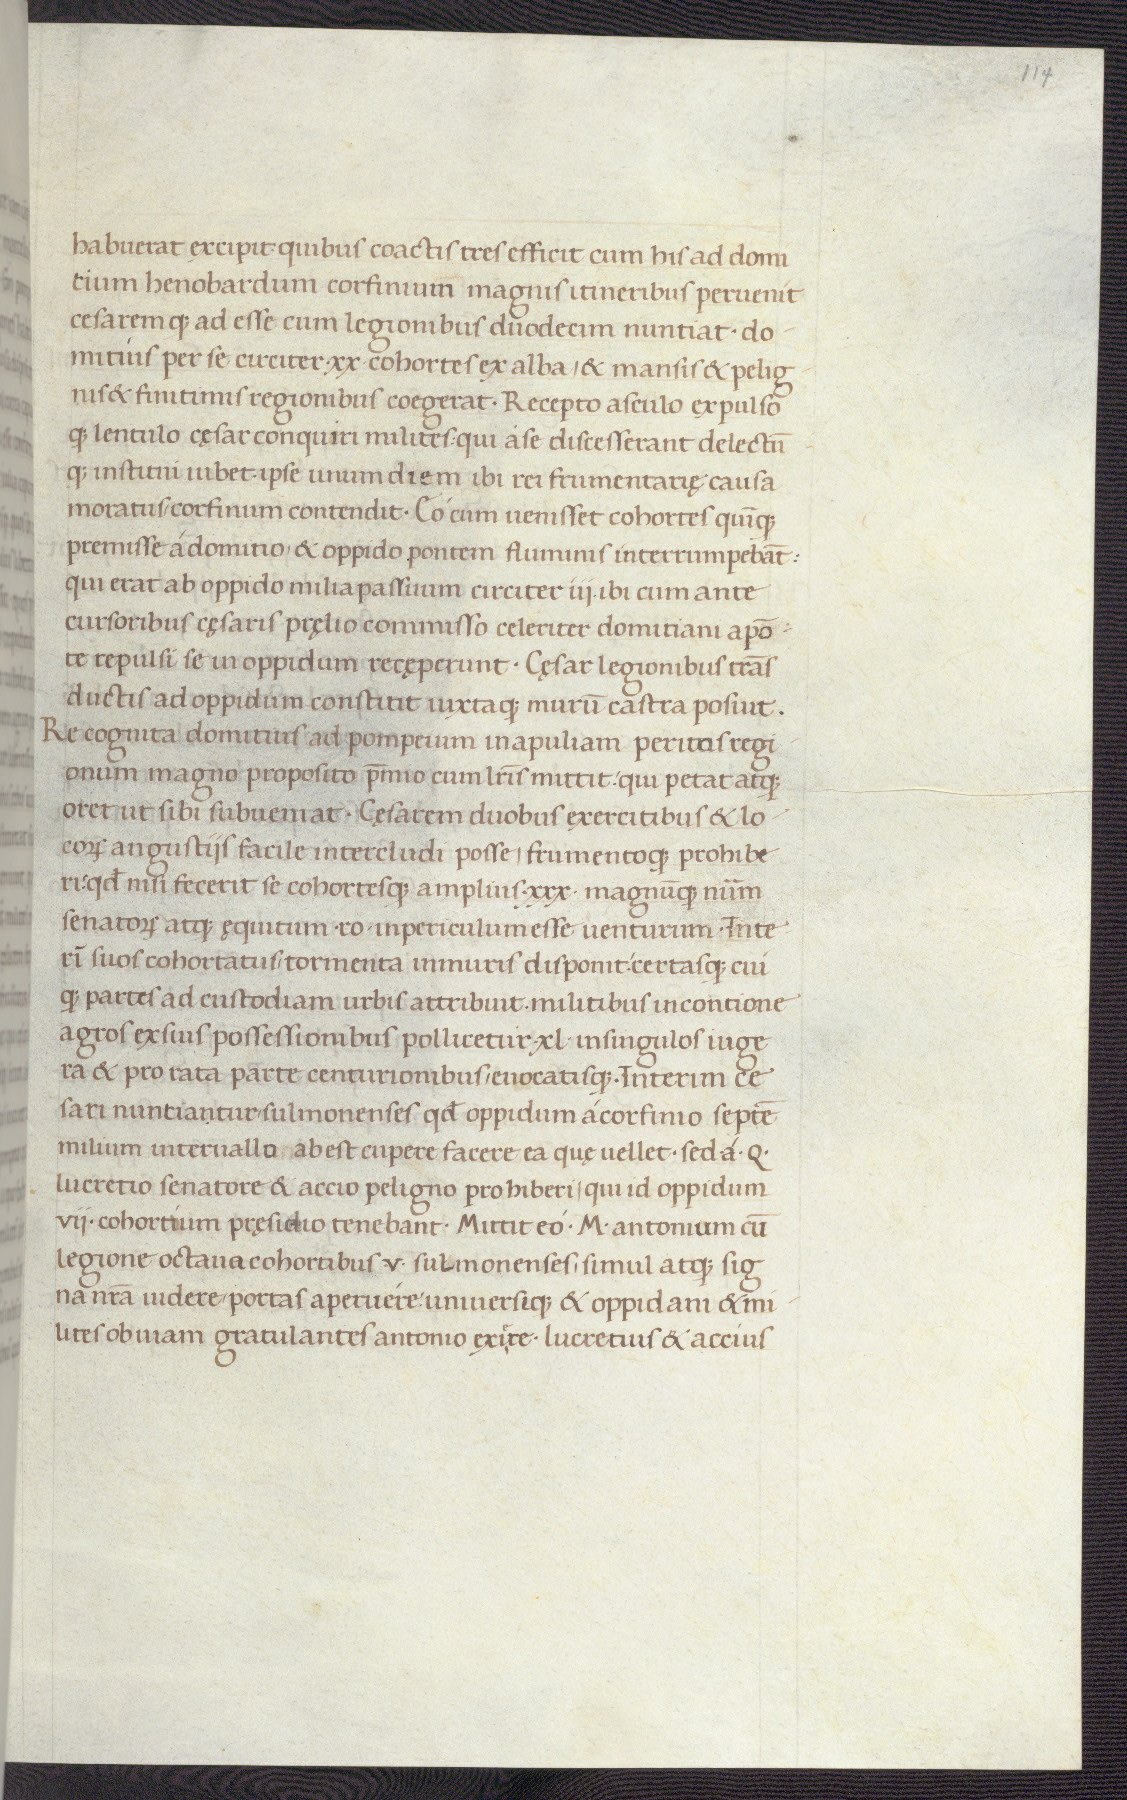 114
habuerat excipit· quibus coactis tres efficit cum his ad domi
tium henobardum corfinium magnis itineribus peruenit
cesaremq; ad esse cum legionibus duodecim nuntiat· do-
mitius per se circiter ·xx· cohortes ex alba, & mansis & pelig-
nis & finitimis regionibus coegerat· Recepto asculo expulso
q; lentulo cęsar conquiri milites· qui á se discesserant delectū-
q; institui iubet· ipse unum diem ibi rei frumentarię causa
moratus, corfinum contendit· Có cum uenisset cohortes quīq;
premisse á domitio, & oppido pontem fluminis interrumpebāt:
qui erat ab oppido milia passuum circiter iii· ibi cum ante
cursoribus cęsaris pręlio commisso celeriter domitiani a pō-
te repulsi se in oppidum recęperunt· Cęsar legionibus trās
ductis ad oppidum constitit iuxtaq; murū castra posiut.
Re cognita domitius ad pompeium in apuliam peritis regi-
onum magno proposito p̄mio cum lr̄is mittit: qui petat atq;
oret ut sibi subueniat· Cęsarem duobus exercitibus & lo-
corꝝ angustijs facile intercludi posse, frumentoq; prohibe
ri: qđ nisi fecerit se cohortesq; amplius ·xxx· magnūq; nūm
senatorꝝ atq; ęquitum ·ro· in periculum esse uenturum· Inte
rī suos cohortatus, tormenta in muris disponit: certasq; cui
q; partes ad custodiam urbis attribuit· militibus in contione
agros ex suis possessionibus pollicetur ·xl· in singulos iuge
ra & pro rata parte centurionibus, euocatisq;· Interim ce
sari nuntiantur, sulmonenses qđ oppidum á corfinio septē
milium interuallo abest cupere facere ea quę uellet· sed á· Q·
lucretio senatore & accio peligno prohiberi, qui id oppidum
vii· cohortium pręsidio tenebant· Mittit eó· M· antonium cū
legione octaua cohortibus v· sulmonenses, simul atq; sig
na nr̄a uidere, portas aperuére: uniuersiq; & oppidani & mi-
lites obuiam gratulantes antonio exire· lucretius & accius